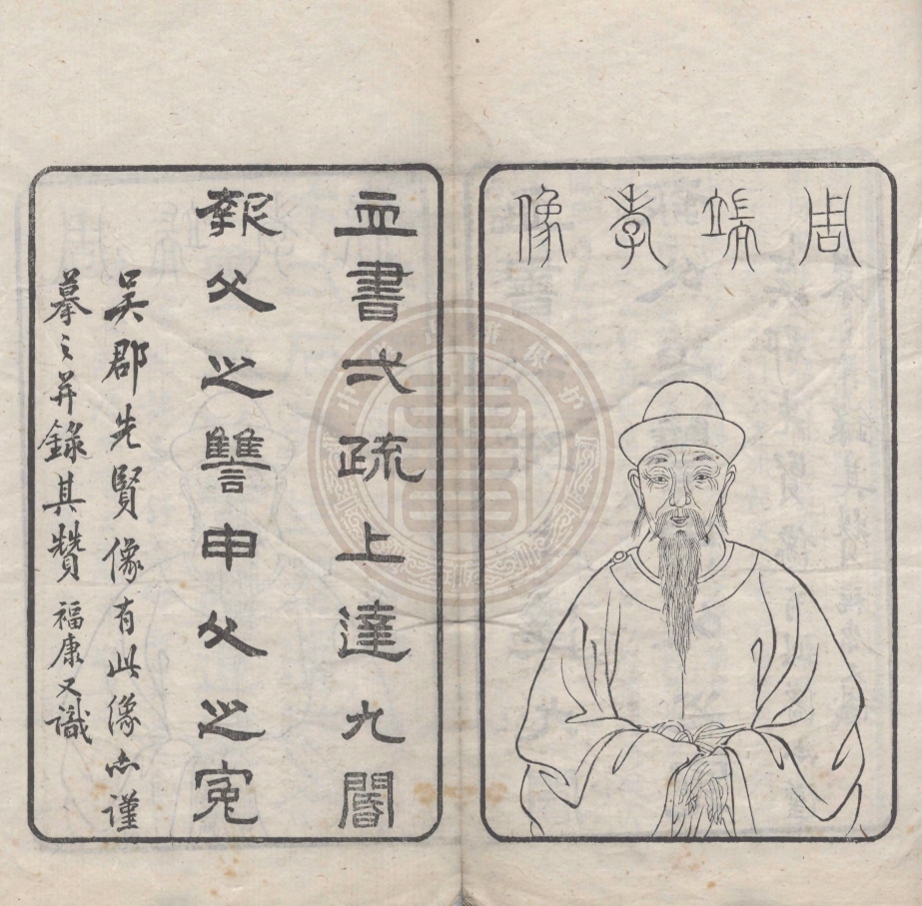 周端孝像
血書弍疏上達九閽
報父之讐申父之冤
吳郡先賢像有此像亦謹
摹之并錄其贊福康又識